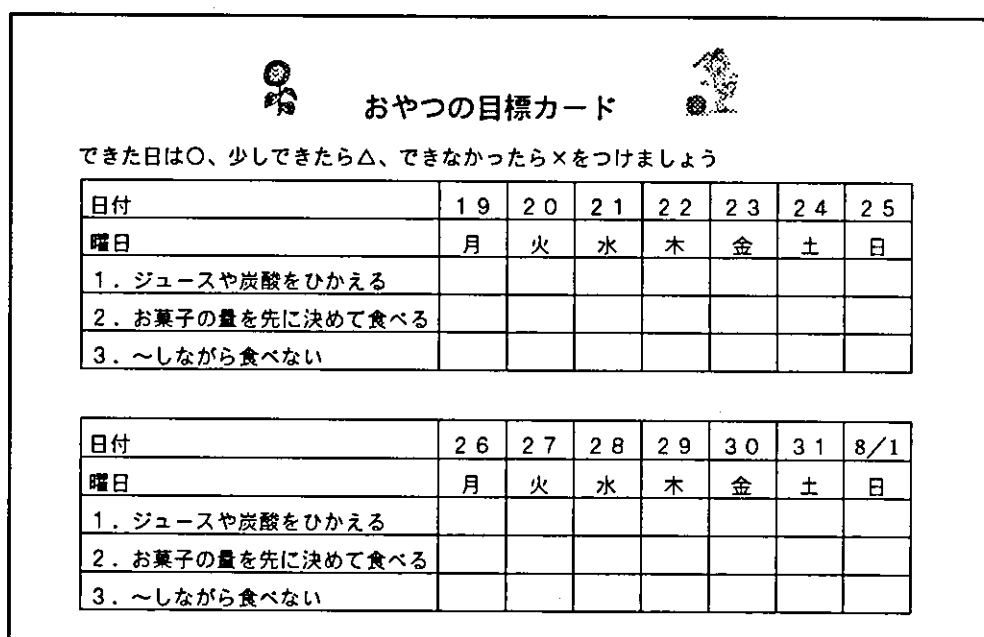 おやつの目標カード
できた日は○、少しできたら△、できなかったら×をつけましょう
日付 19 20 21 22 23 24 25
曜日 月 火 水 木 金 土 日
1.ジュースや炭酸をひかえる
2.お菓子の量を先に決めて食べる
3.~しながら食べない
日付 26 27 28 29 30 31 8/1
曜日 月 火 水 木 金 土 日
1.ジュースや炭酸をひかえる
2.お菓子の量を先に決めて食べる
3.~しながら食べない